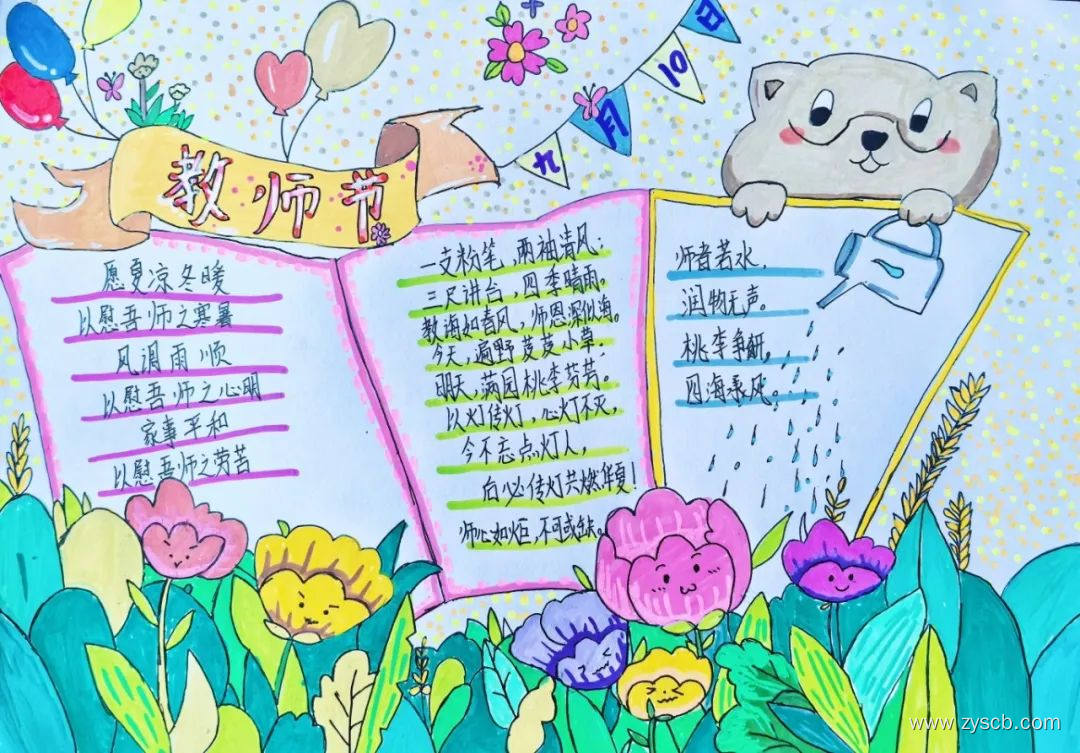 教师节
九月10日
愿夏凉冬暖
以慰吾师之寒暑
风调雨顺
以慰吾师之心明
家事平和
以慰吾师之劳苦
一支粉笔,两袖清风;
三尺讲台,四季晴雨。
教海如春风,师恩深似海。
今天,遍野茭茭小草,
明天,满园桃李芬芳。
以灯传灯,心灯不灭,
今不忘点灯人,
后必传灯共燃华夏!
师心如炬,不可或缺。
师者若水,
润物无声。
桃李争妍,
四海乘风。
www.zyscb.com